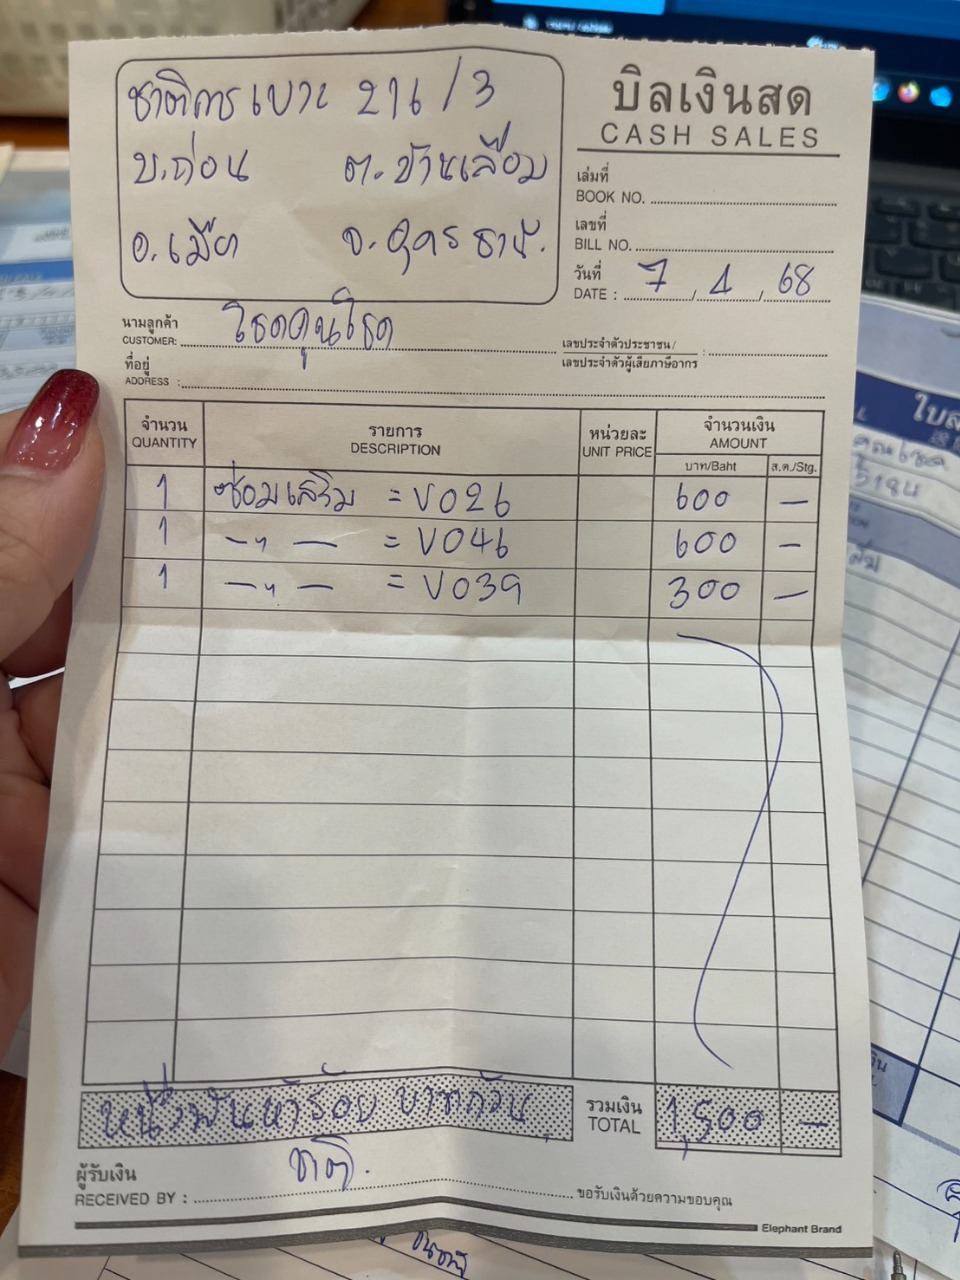 ชาติการเบาะ 216/3
บ.ถ่อน ต.บ้านเลื่อม
อ.เมือง จ.อุดรธานี.
บิลเงินสด
CASH SALES
เล่มที่
BOOK NO.
เลขที่
BILL NO.
วันที่
DATE : 7 / 1 / 68
นามลูกค้า
CUSTOMER: โชคคูนโชค
เลขประจำตัวประชาชน /
เลขประจำตัวผู้เสียภาษีอากร :
ที่อยู่
ADDRESS :
จำนวน รายการ หน่วยละ จำนวนเงิน
QUANTITY DESCRIPTION UNIT PRICE AMOUNT
บาท/Baht ส.ต./Stg.
1 ซ่อมเสริม = V026 600 —
1 —〃— = V046 600 —
1 —〃— = V039 300 —
หนึ่งพันห้าร้อยบาทถ้วน
รวมเงิน
TOTAL 1,500 —
ชาติ.
ผู้รับเงิน
RECEIVED BY : ขอรับเงินด้วยความขอบคุณ
Elephant Brand